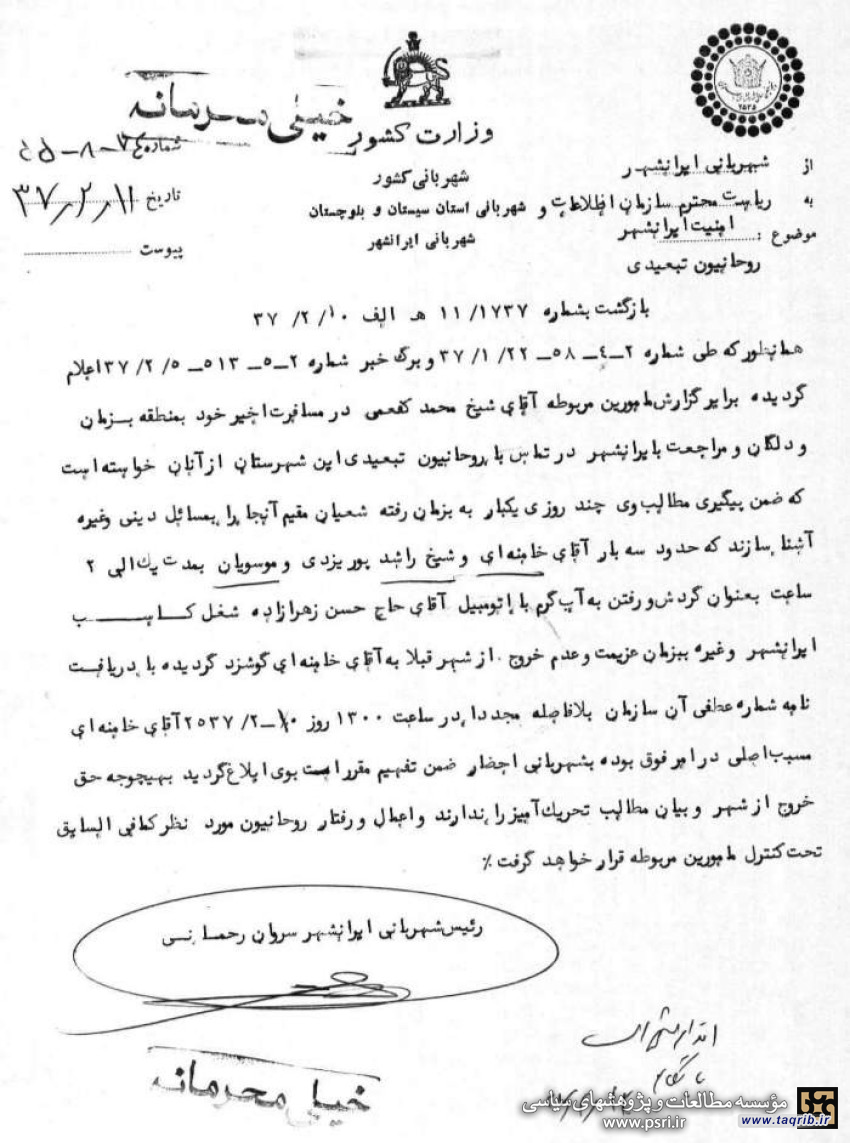 خیلی محرمانه
وزارت کشور
شهربانی کشور
شهربانی استان سیستان و بلوچستان
شهربانی ایرانشهر
۲۵۳۵
از شهربانی ایرانشهر
به ریاست محترم سازمان اطلاعات و
امنیت ایرانشهر
موضوع :
روحانیون تبعیدی
شماره
تاریخ ۳۷/۲/۱۱
پیوست
بازگشت بشماره ۱۱/۱۷۳۷ هـ الف ۳۷/۲/۱۰
همانطور که طی شماره ۲-۴-۵۸-۳۷/۱/۲۲ و برگ خبر شماره ۲-۵-۵۱۳-۳۷/۲/۵ اعلام
گردیده برابر گزارش مامورین مربوطه آقای شیخ محمد کفعمی در مسافرت اخیر خود بمنطقه بزمان
و دلگان و مراجعت بایرانشهر در تماس با روحانیون تبعیدی این شهرستان از آنان خواسته است
که ضمن پیگیری مطالب وی چند روزی یکبار به بزمان رفته شعیان مقیم آنجا را بمسائل دینی وغیره
آشنا سازند که حدود سه بار آقای خامنه ای و شیخ راشد پوریزدی و موسویان بمدت یك الی ۲
ساعت بعنوان گردش و رفتن به آب گرم با اتومبیل آقای حاج حسن زهرازاده شغل کاسب
ایرانشهر وغیره ببزمان عزیمت وعدم خروج . از شهر قبلا به آقای خامنه ای گوشزد گردیده با دریافت
نامه شماره عطفی آن سازمان بلافاصله مجددا در ساعت ۱۳۰۰ روز ۱۰-۲/۲۵۳۷ آقای خامنه ای
مسبب اصلی در امر فوق بوده بشهربانی احضار ضمن تفهیم مقررات بوی ابلاغ گردید بهیچوجه حق
خروج از شهر و بیان مطالب تحریك آمیز را ندارند و اعمال و رفتار روحانیون مورد نظر کمافی السابق
تحت کنترل مامورین مربوطه قرار خواهد گرفت ٪
رئیس شهربانی ایرانشهر سروان رحمانی
خیلی محرمانه
مؤسسه مطالعات و پژوهشهای سیاسی
www.psri.ir
www.taqrib.ir